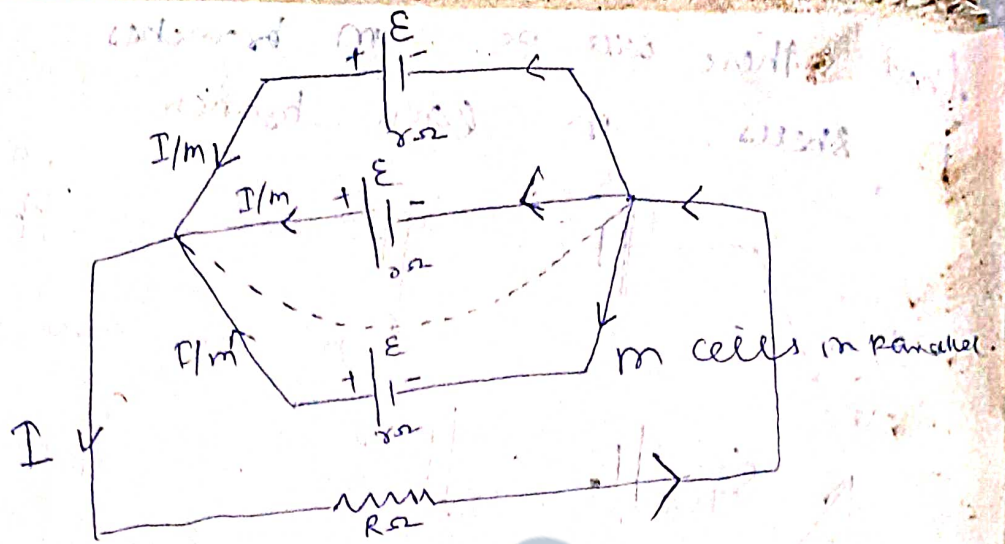 ε
+ -
rΩ
I/m
ε
I/m + -
rΩ
ε
I/m + -
rΩ
m cells in parallel.
I
RΩ